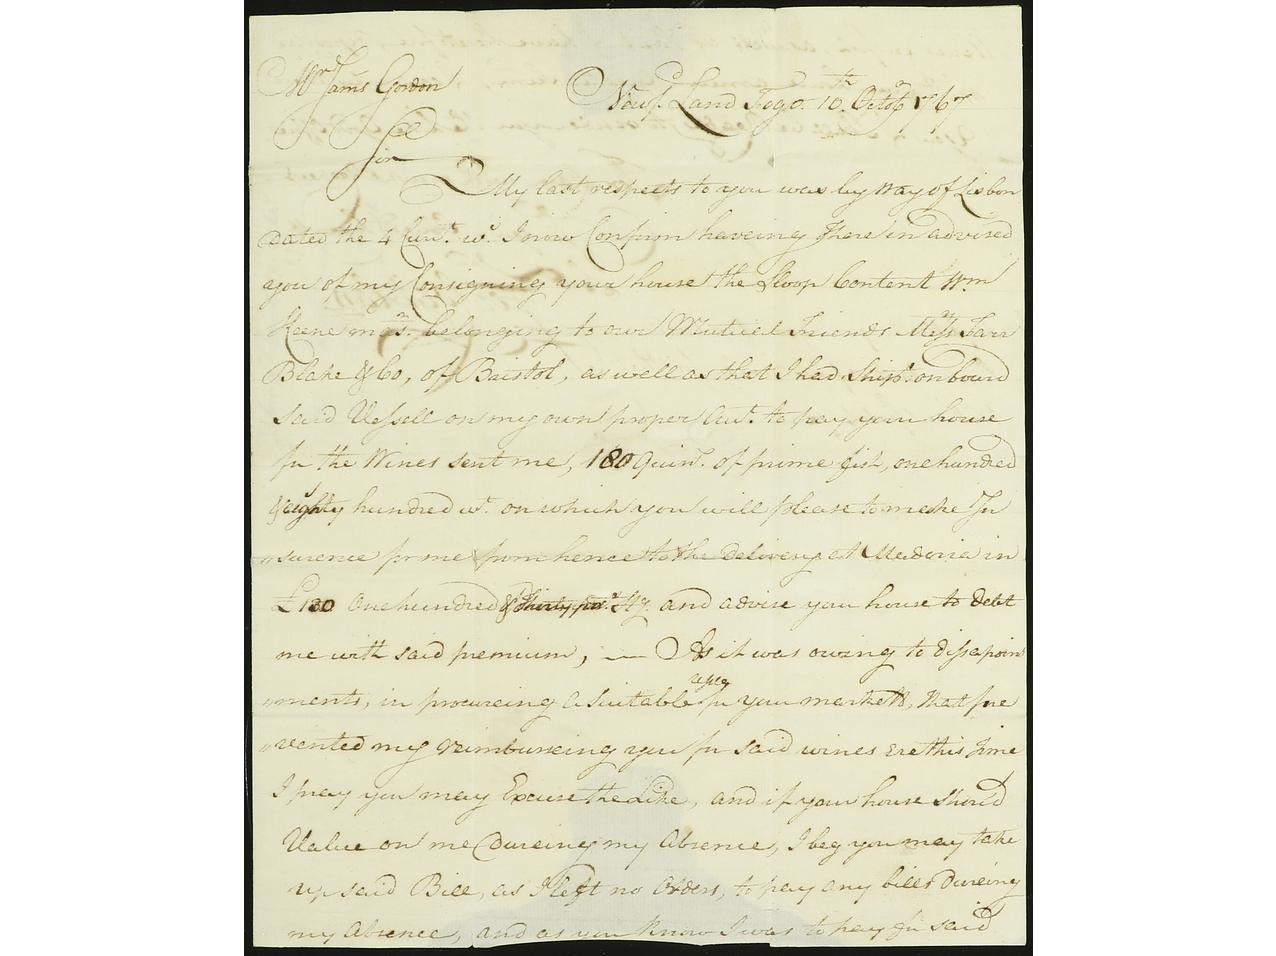 Mr. Jams Gordon
Newfd. Land Togo. 10th. Octobr 1767
Sir
My last respects to you was by Way of Lisbon
dated the 4 Curt. wc. I now Confirm haveing there in advised
you of my Consigning your house the Sloop Content Wm
Keene mas. belonging to our Mutuel Friends Messrs Farr
Blake & Co, of Bristol, as well as that I had Shipt. on bourd
said Vessell on my own proper Acut. to pay your house
for the Wines sent me, 180 Quinl. of prime fish, one hundred
& eighty hundred wt. on which you will please to make In
surence for me from hence to the delivery at Mederia in
£130 One hundred & Thirty pds. Stg. and advise your house to Debt
me with said premium, — As it was owing to dissapoin
ments, in procureing a Suitable for your markett, that pre
vented my reimbursing you for said wines Ere this Time
I pray you may Excuse the Like, and if your house should
Value on me Dureing my Absence, I beg you may take
up said Bill, as I left no Orders, to pay any bills Dureing
my Absence, and as you know I was to pay for said